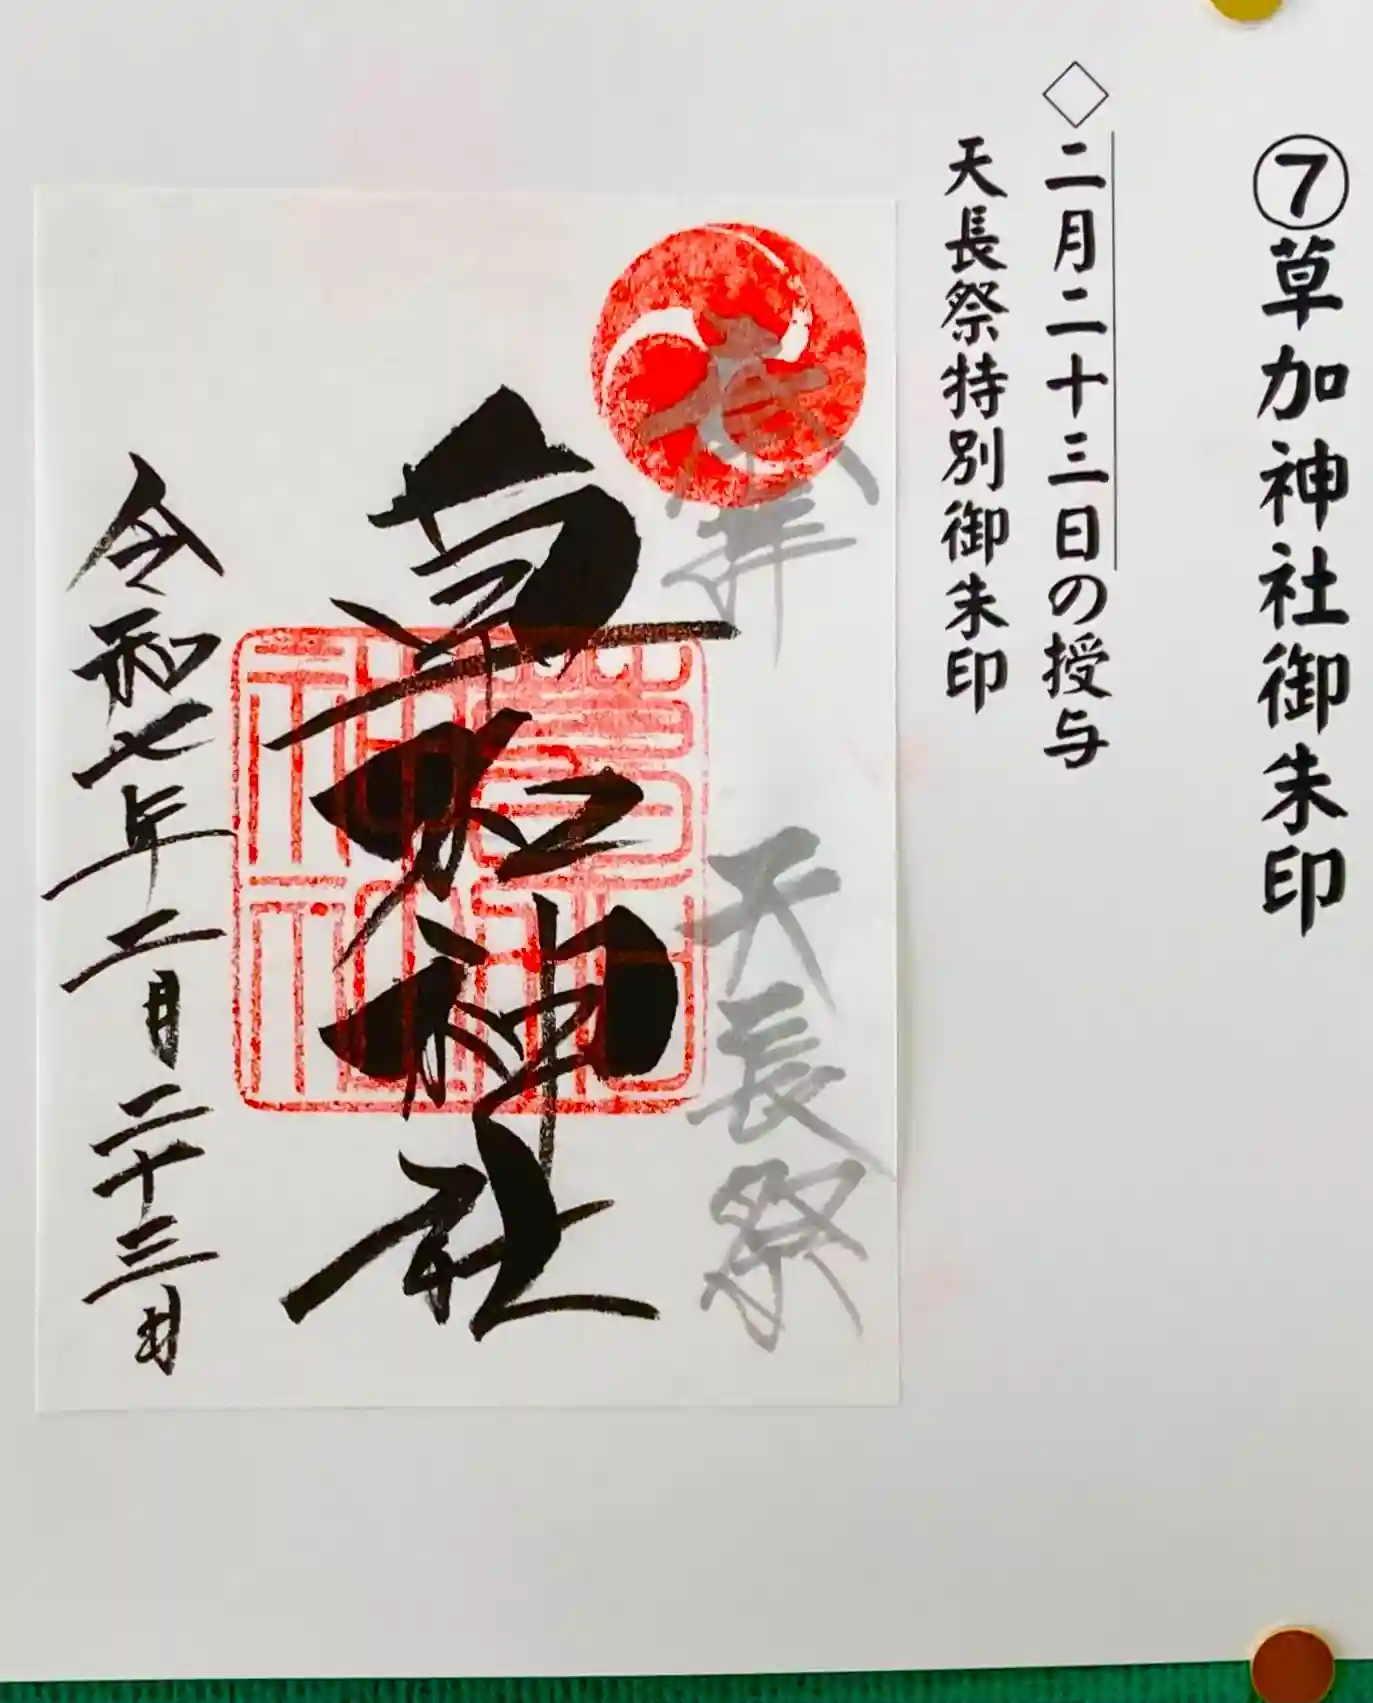 ⑦草加神社御朱印
◇二月二十三日の授与
天長祭特別御朱印
奉拝
天長祭
草加神社
令和七年二月二十三日